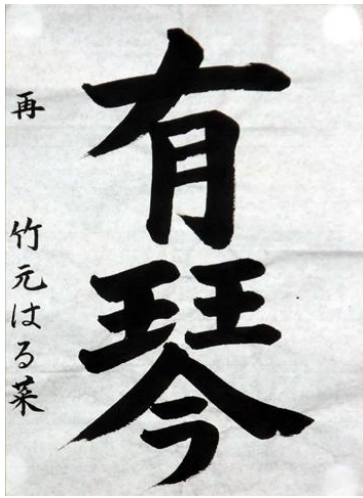 有琴
再 竹元はる菜